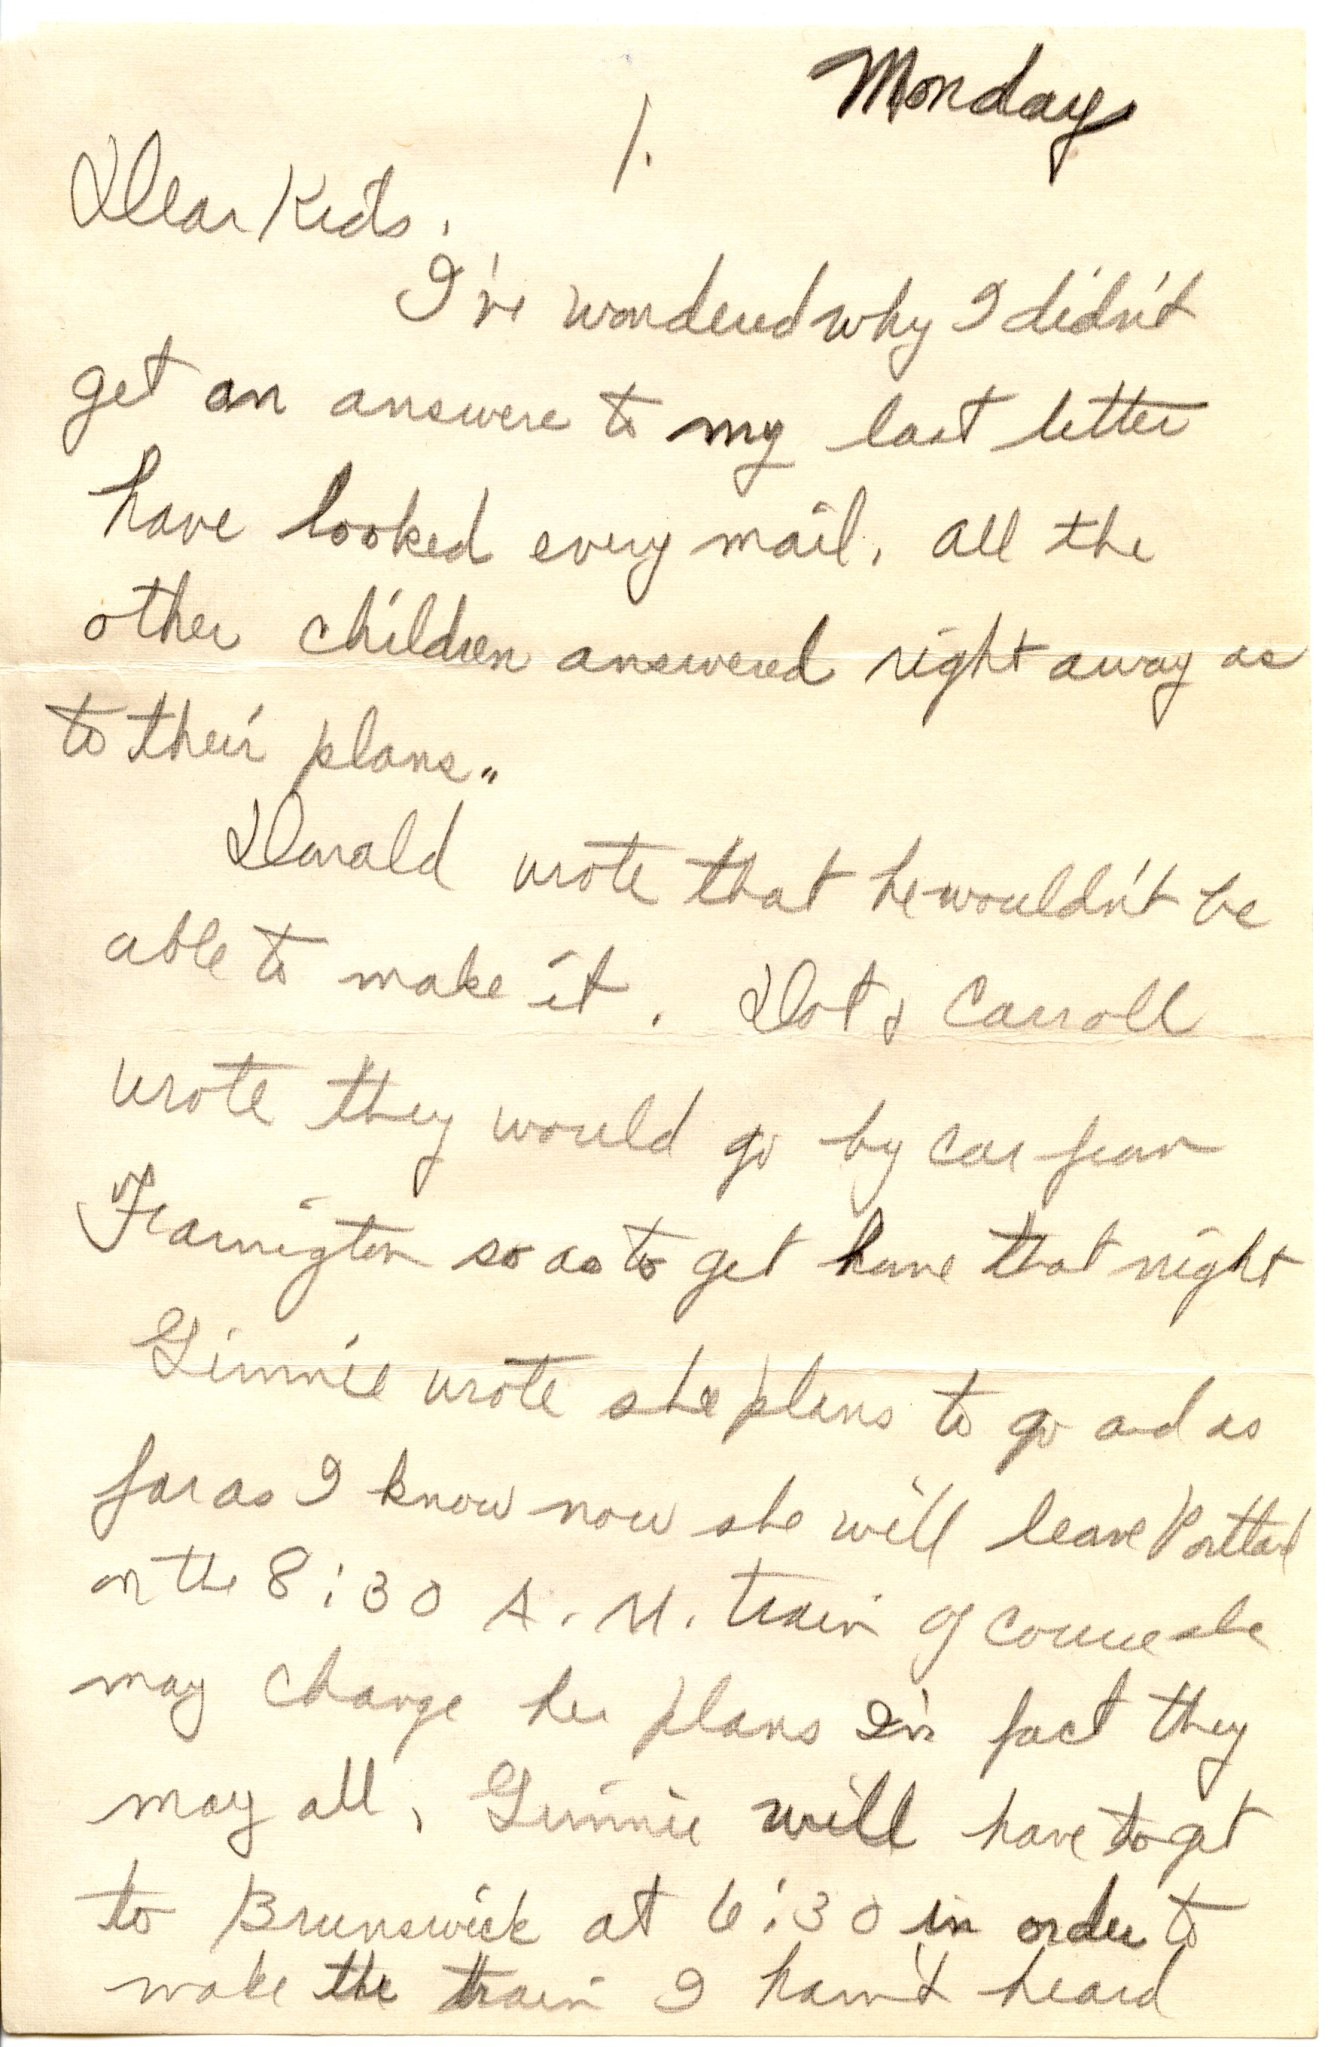 Monday
1.
Dear Kids.
I've wondered why I didn't
get an answere to my last letter
have looked every mail. all the
other children answered right away as
to their plans.
Donald wrote that he wouldn't be
able to make it. Dot & Carroll
wrote they would go by car from
so as to get home that night
Ginnie wrote she plans to go and as
far as I know now she will leave Portland
on the 8:30 A.M. train of course she
may change her plans in fact they
may all, Ginnie will have to get
to Brunswick at 6:30 in order to
make the train I havn't heard